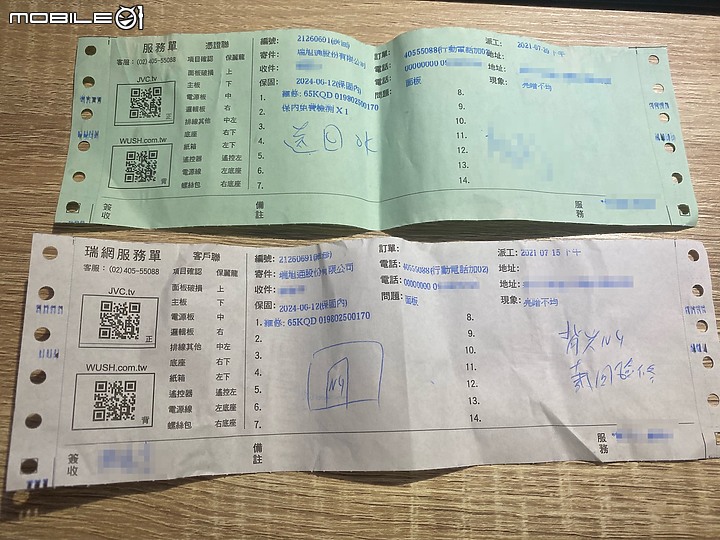 MOBILE01
服務單 憑證聯
客服：(02) 405-55088
項目確認 保麗龍
JVC.tv
面板破損 上
主板 下
電源板 中
邏輯板 右
正
排線其他 中左
底座 右下
WUSH.com.tw
紙箱 左下
遙控器 遙控左
電源線 左底座
背
螺絲包 右底座
簽收
編號: 21260691
寄件: 瑞旭通股份有限公司
收件:
保固: 2024-06-12(保固內)
1. 維修: 65KQD 019802500170
2. 保內免費檢測 X 1
3.
4. 送回
5.
6.
7.
備註
訂單:
電話: 40555088(行動電話加02)
電話: 00000000
問題: 面板
派工: 2021-07-15 下午
地址:
地址:
現象: 亮暗不均
8.
9.
10.
11.
12.
13.
14.
服務
瑞網服務單 客戶聯
客服：(02) 405-55088
項目確認 保麗龍
JVC.tv
面板破損 上
主板 下
電源板 中
邏輯板 右
正
排線其他 中左
底座 右下
WUSH.com.tw
紙箱 左下
遙控器 遙控左
電源線 左底座
背
螺絲包 右底座
簽收
編號: 21260691
寄件: 瑞旭通股份有限公司
收件:
保固: 2024-06-12(保固內)
1. 維修: 65KQD 019802500170
2.
3.
4. NG
5.
6.
7.
備註
訂單:
電話: 40555088(行動電話加02)
電話: 00000000
問題: 面板
派工: 2021-07-15 下午
地址:
地址:
現象: 亮暗不均
8.
9. 背光NG
10.
11.
12.
13.
14.
服務